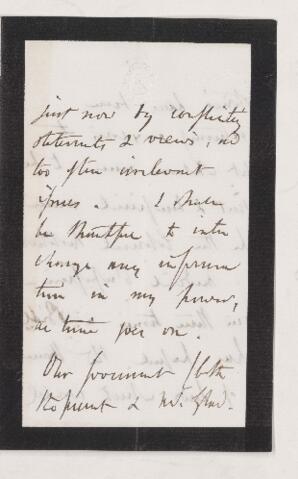 just now by conflicting
statements & views, and
too often irrelevant
issues. I shall
be thankful to inter
change any informa
tion in my power,
as time goes on.
Our Government (both
&